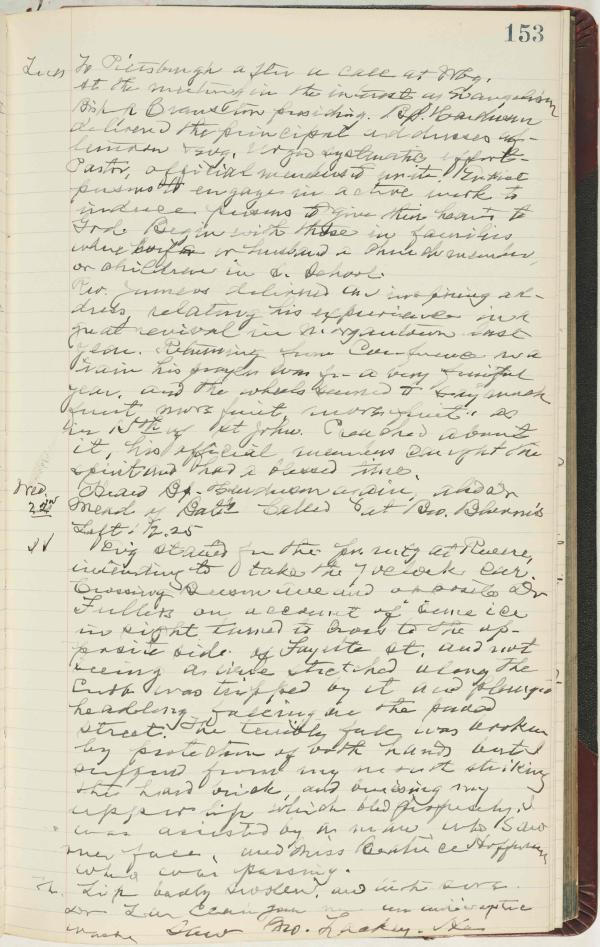 153
Tues To Pittsburgh after a call at Wbg.
at the meeting in the interest of Evangelism
Bishop Cranston presiding.
delivered the principal addresses af-
ternoon & evg. Urges systematic effort-
Pastor, official members to unite. Enlist
persons to engage in active work to
induce persons to give their hearts to
God. Begin with those in families
where wife or husband is church member,
or children in S. School.
Rev. delivered an inspiring ad-
dress, relating his experience in a
great revival in Morgantown last
year. Returning from Conference on a
train his prayer was for a very fruitful
year, and the wheels seemed to say much
fruit, more fruit, more fruit. as
in 15th of St John. Preached about
it, his official members caught the
spirit and had a blessed time.
Wed. Heard Dr. again, and Dr
22nd of Balt. Called at Bro.
Left 12.25
Evg started for the pr. mtg at
intending to take the 7 oclock car.
Crossing ave and opposite Dr
Fullers on account of some ice
in sight turned to cross to the op-
posite side of Fayette St. and not
seeing a wire stretched along the
curb was tripped by it and plunged
headlong falling on the paved
street. The terribly fall was broken
by protection of both hands but I
suffered from my mouth striking
the hard brick, and bruising my
upper lip which bled profusely. I
was assisted by a man who saw
me fall, and Miss Beatrice
who was passing.
Th. Lip badly swolen, and sore.
Dr an antiseptic
wash. Saw Bro. Lackey.